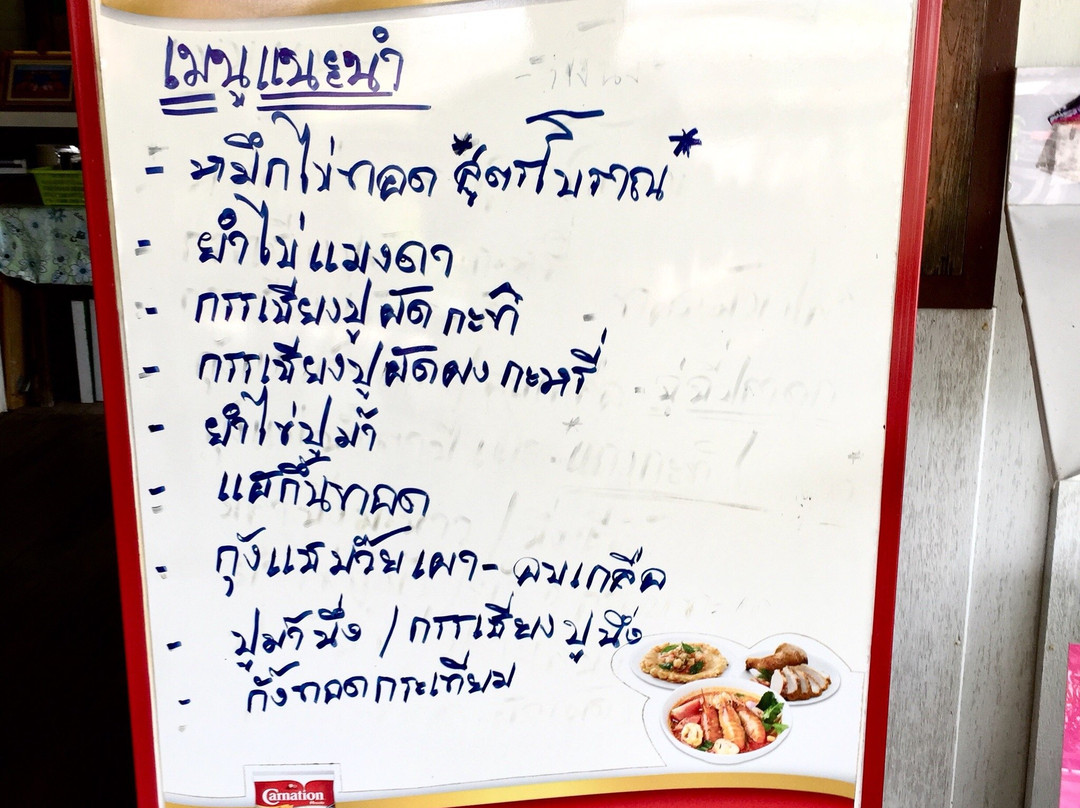 เมนูแนะนำ
- หมึกไข่ทอด *สูตรโบราณ*
- ยำไข่แมงดา
- กรรเชียงปูผัดกะทิ
- กรรเชียงปูผัดผงกะหรี่
- ยำไข่ปูม้า
- แฮ่กึ๊นทอด
- กุ้งแชบ๊วยเผา - อบเกลือ
- ปูม้านึ่ง / กรรเชียงปูนึ่ง
- กั้งทอดกระเทียม
Carnation